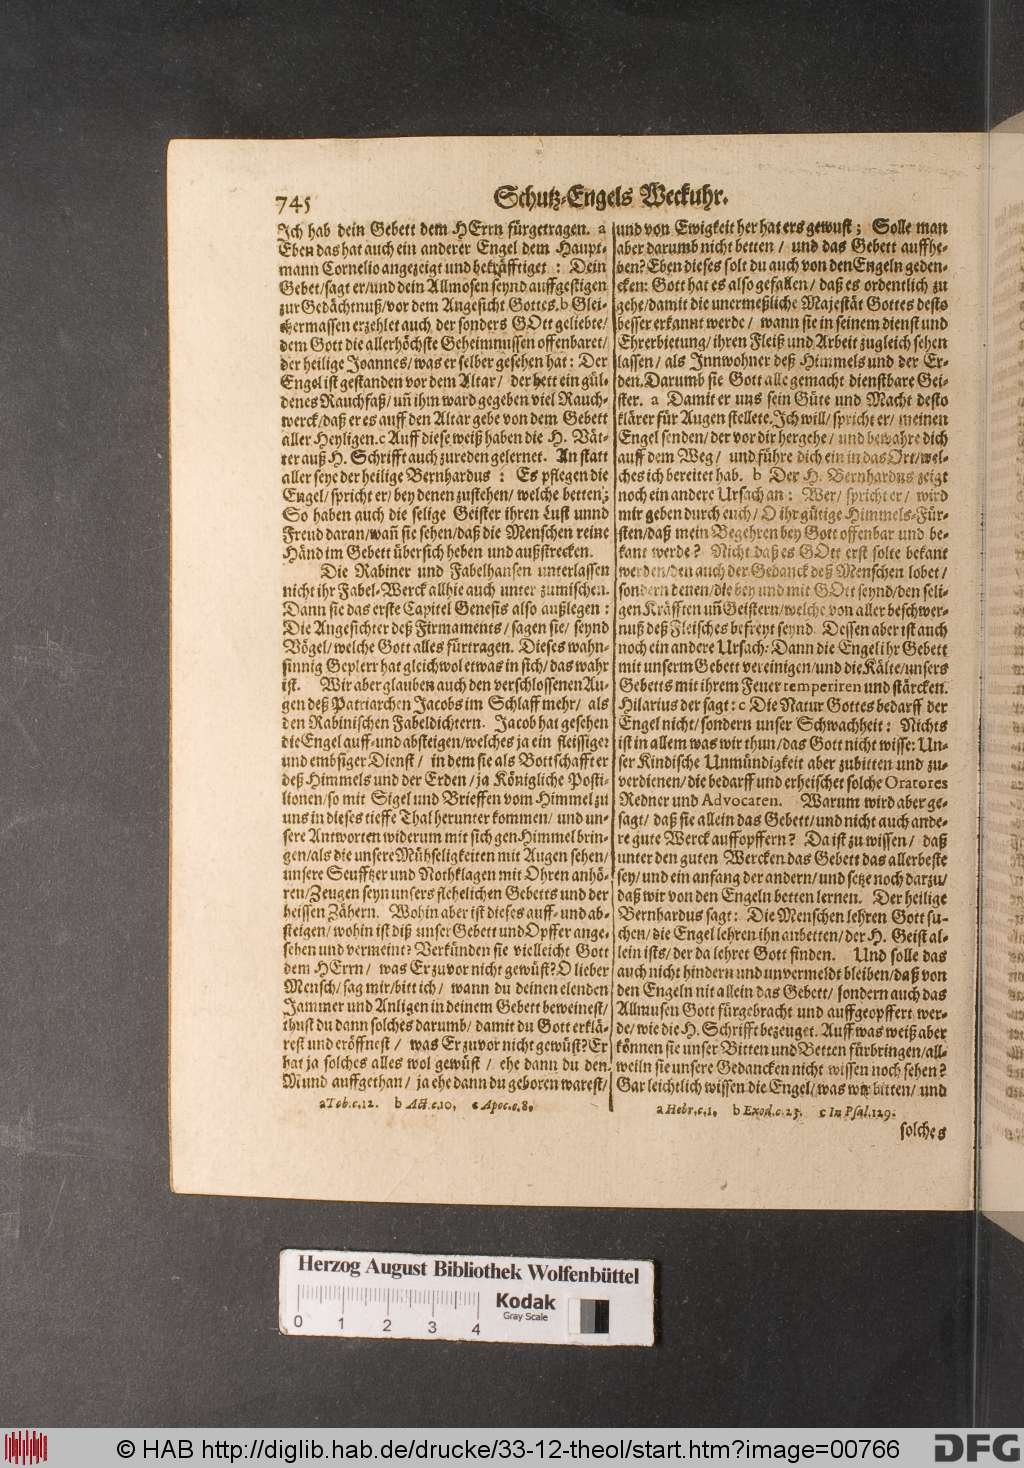 745
Schutz-Engels Weckuhr.
Ich hab dein Gebett dem HErrn fürgetragen. a
Eben das hat auch ein anderer Engel dem Haupt-
mann Cornelio angezeigt und bekräfftiget: Dein
Gebet/sagt er/und dein Allmosen seynd auffgestigen
zur Gedächtnuß/vor dem Angesicht Gottes.b Glei-
chermassen erzehlet auch der sonders GOtt geliebte/
dem Gott die allerhöchste Geheimnussen offenbaret/
der heilige Joannes/was er selber gesehen hat: Der
Engel ist gestanden vor dem Altar/ der hett ein gül-
denes Rauchfaß/ uñ ihm ward gegeben viel Rauch-
werck/daß er es auff den Altar gebe von dem Gebett
aller Heyligen.c Auff diese weiß haben die H. Vät-
ter auß H. Schrifft auch zureden gelernet. An statt
aller seye der heilige Bernhardus: Es pflegen die
Engel/ spricht er/ bey denen zustehen/ welche betten;
So haben auch die selige Geister ihren Lust unnd
Freud daran/wañ sie sehen/daß die Menschen reine
Händ im Gebett übersich heben und außstrecken.
Die Rabiner und Fabelhansen unterlassen
nicht ihr Fabel-Werck allhie auch unter zumischen.
Dann sie das erste Capitel Genesis also außlegen:
Die Angesichter deß Firmaments/ sagen sie/ seynd
Vögel/welche Gott alles fürtragen. Dieses wahn-
sinnig Geplerr hat gleichwol etwas in sich/das wahr
ist. Wir aber glauben auch den verschlossenen Au-
gen deß Patriarchen Jacobs im Schlaff mehr/ als
den Rabinischen Fabeldichtern. Jacob hat gesehen
die Engel auff-und absteigen/welches ja ein fleissiger
und embsiger Dienst/ in dem sie als Bottschaffter
deß Himmels und der Erden/ja Königliche Posti-
lionen/so mit Sigel und Brieffen vom Himmel zu
uns in dieses tieffe Thal herunter kommen/ und un-
sere Antworten widerum mit sich gen Himmel brin-
gen/als die unsere Mühseligkeiten mit Augen sehen/
unsere Seufftzer und Nothklagen mit Ohren anhö-
ren/Zeugen seyn unsers flehelichen Gebetts und der
heissen Zähern. Wohin aber ist dieses auff- und ab-
steigen/wohin ist diß unser Gebett und Opffer ange-
sehen und vermeint? Verkünden sie vielleicht Gott
dem HErrn/ was Er zuvor nicht gewüst? O lieber
Mensch/sag mir/bitt ich/ wann du deinen elenden
Jammer und Anligen in deinem Gebett beweinest/
thust du dann solches darumb/ damit du Gott erklä-
rest und eröffnest/ was Er zuvor nicht gewüst? Er
hat ja solches alles wol gewüst/ ehe dann du den
Mund auffgethan/ ja ehe dann du geboren warest/
a Tob.c.12. b Act.c.10, c Apoc.c.8,
und von Ewigkeit her hat ers gewust; Solle man
aber darumb nicht betten/ und das Gebett auffhe-
ben? Eben dieses solt du auch von den Engeln geden-
cken: Gott hat es also gefallen/ daß es ordentlich zu
gehe/damit die unermeßliche Majestät Gottes desto
besser erkannt werde/ wann sie in seinem dienst und
Ehrerbietung/ihren Fleiß und Arbeit zugleich sehen
lassen/ als Innwohner deß Himmels und der Er-
den. Darumb sie Gott alle gemacht dienstbare Gei-
ster. a Damit er uns sein Güte und Macht desto
klärer für Augen stellete. Ich will/ spricht er/ meinen
Engel senden/der vor dir hergehe/ und bewahre dich
auff dem Weg/ und führe dich ein in das Ort/wel-
ches ich bereitet hab. b Der H. Bernhardus zeigt
noch ein andere Ursach an: Wer/ spricht er/ wird
mir geben durch euch/ O ihr gütige Himmels-Für-
sten/daß mein Begehren bey Gott offenbar und be-
kant werde? Nicht daß es GOtt erst solte bekant
werden/den auch der Gedanck deß Menschen lobet/
sondern denen/die bey und mit GOtt seynd/den seli-
gen Kräfften uñ Geistern/welche von aller beschwer-
nuß deß Fleisches befreyt seynd. Dessen aber ist auch
noch ein andere Ursach: Dann die Engel ihr Gebett
mit unserm Gebett vereinigen/und die Kälte/unsers
Gebetts mit ihrem Feuer temperiren und stärcken.
Hilarius der sagt: c Die Natur Gottes bedarff der
Engel nicht/ sondern unser Schwachheit: Nichts
ist in allem was wir thun/das Gott nicht wisse: Un-
ser Kindische Unmündigkeit aber zubitten und zu-
verdienen/die bedarff und erheischet solche Oratores
Redner und Advocaten. Warum wird aber ge-
sagt/ daß sie allein das Gebett/und nicht auch ande-
re gute Werck auffopffern? Da ist zu wissen/ daß
unter den guten Wercken das Gebett das allerbeste
sey/und ein anfang der andern/und setze noch darzu/
daß wir von den Engeln betten lernen. Der heilige
Bernhardus sagt: Die Menschen lehren Gott su-
chen/die Engel lehren ihn anbetten/der H. Geist al-
lein ists/der da lehret Gott finden. Und solle das
auch nicht hindern und unvermeldt bleiben/daß von
den Engeln nit allein das Gebett/ sondern auch das
Allmusen Gott fürgebracht und auffgeopffert wer-
de/wie die H. Schrifft bezeuget. Auff was weiß aber
können sie unser Bitten und Betten fürbringen/all-
weiln sie unsere Gedancken nicht wissen noch sehen?
Gar leichtlich wissen die Engel/was wir bitten/ und
a Hebr.c.1, b Exod.c.23. c In Psal.129.
solches
Herzog August Bibliothek Wolfenbüttel
0 1 2 3 4
Kodak
Gray Scale
© HAB http://diglib.hab.de/drucke/33-12-theol/start.htm?image=00766
DFG